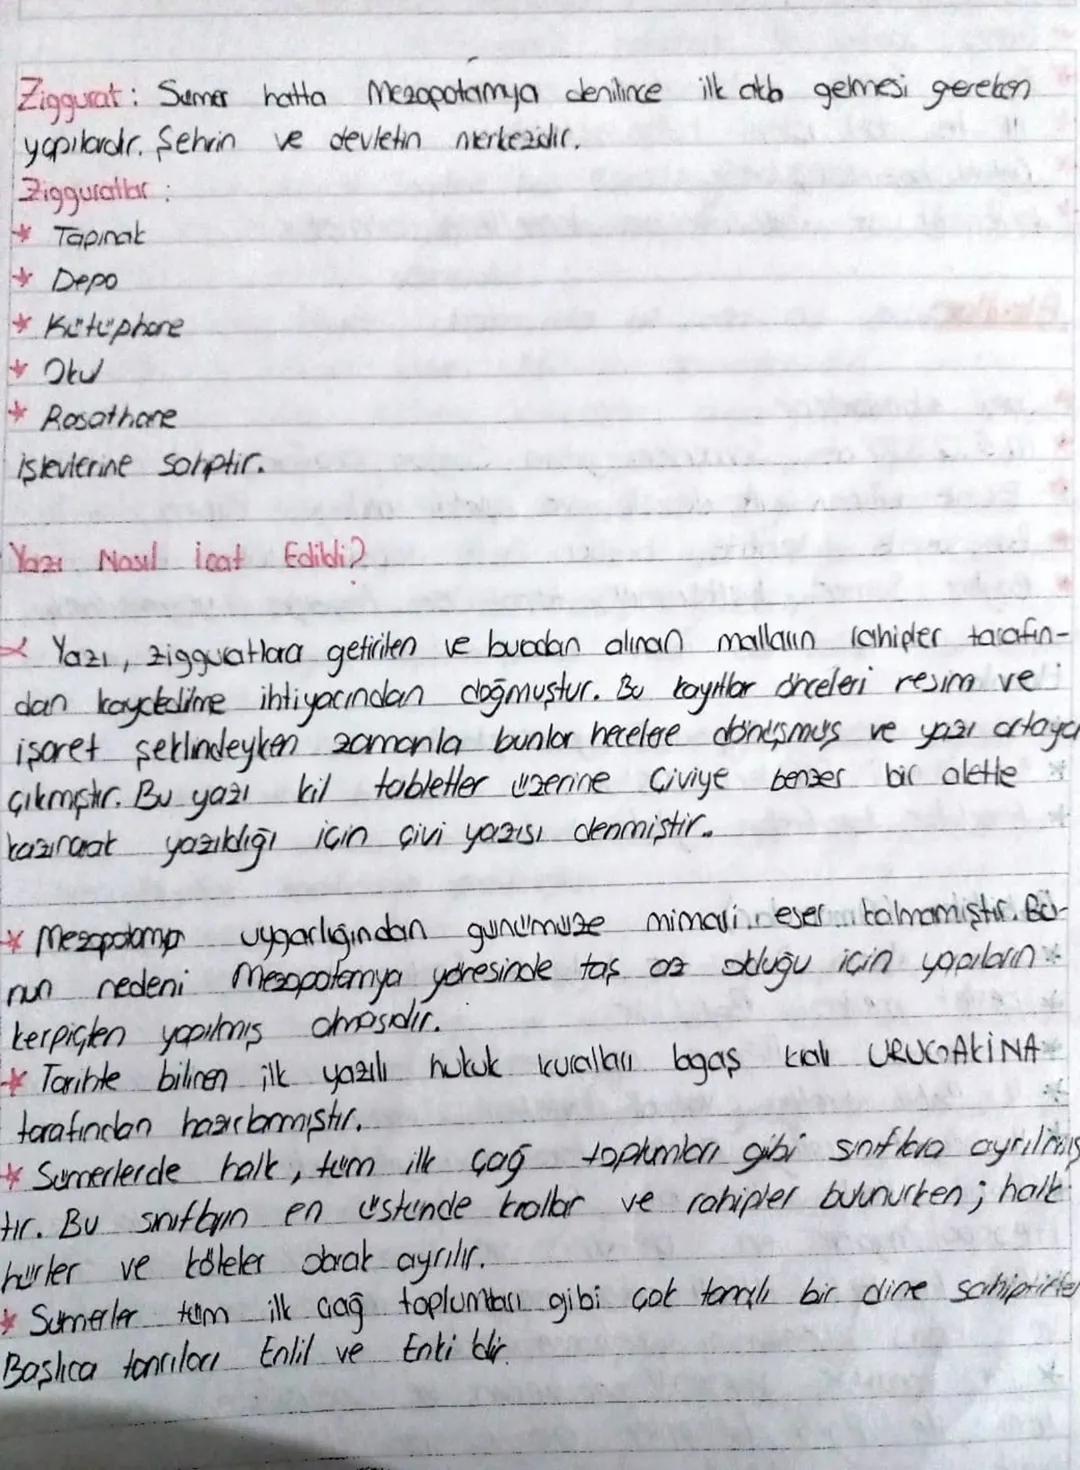 Ziggurat : Sümer hatta Mezopotamya denilince ilk akla gelmesi gereken
yapılardır. Şehrin ve devletin merkezidir.
Zigguratlar :
* Tapınak
* Depo
* Kütüphane
* Okul
* Rasathane
işlevlerine sahiptir.
Yazı Nasıl İcat Edildi?
* Yazı, zigguratlara getirilen ve buradan alınan malların rahipler tarafın-
dan kaydedilme ihtiyacından doğmuştur. Bu kayıtlar önceleri resim ve
işaret şeklindeyken zamanla bunlar hecelere dönüşmüş ve yazı ortaya
çıkmıştır. Bu yazı kil tabletler üzerine çiviye benzer bir aletle
kazınarak yazıldığı için çivi yazısı denmiştir.
* Mezopotamya uygarlığından günümüze mimari eser kalmamıştır. Bu-
nun nedeni Mezopotamya yöresinde taş az olduğu için yapıların
kerpiçten yapılmış olmasıdır.
* Tarihte bilinen ilk yazılı hukuk kuralları lagaş kralı URUGAKİNA
tarafından hazırlanmıştır.
* Sümerlerde halk, tüm ilk çağ toplumları gibi sınıflara ayrılmış
tır. Bu sınıfların en üstünde krallar ve rahipler bulunurken ; halk
hürler ve köleler olarak ayrılır.
* Sümerler tüm ilk çağ toplumları gibi çok tanrılı bir dine sahiptirler
Başlıca tanrıları Enlil ve Enki'dir.